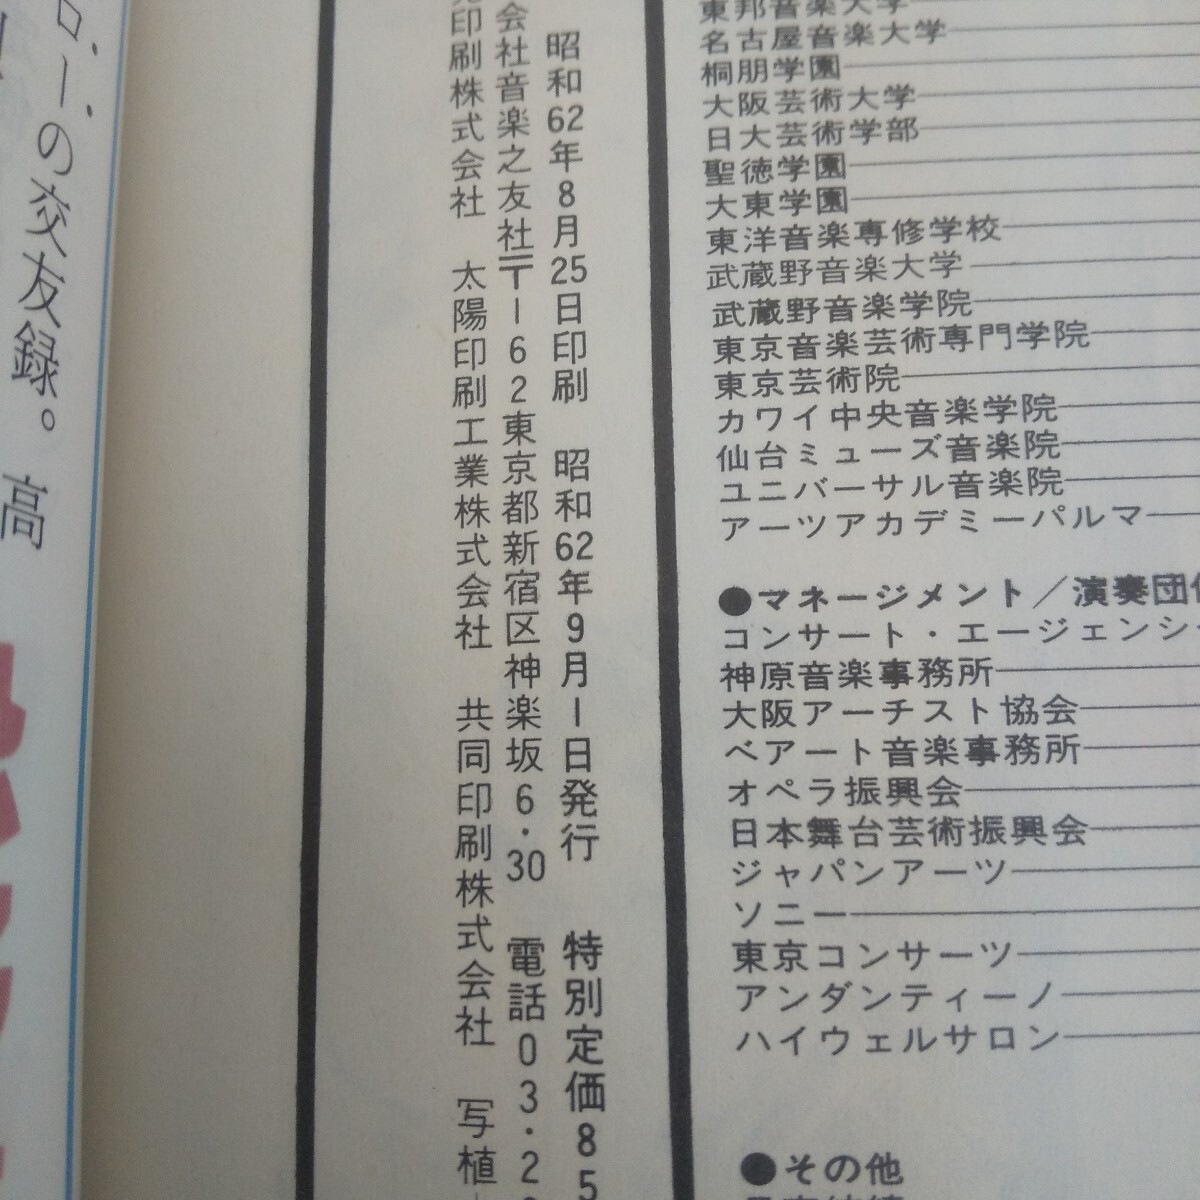 東邦音楽大学
名古屋音楽大学
桐朋学園
大阪芸術大学
日大芸術学部
聖徳学園
大東学園
東洋音楽専修学校
武蔵野音楽大学
武蔵野音楽学院
東京音楽芸術専門学院
東京芸術院
カワイ中央音楽学院
仙台ミューズ音楽院
ユニバーサル音楽院
アーツアカデミーパルマ
●マネージメント／演奏団
コンサート・エージェンシ
神原音楽事務所
大阪アーチスト協会
ベアート音楽事務所
オペラ振興会
日本舞台芸術振興会
ジャパンアーツ
ソニー
東京コンサーツ
アンダンティーノ
ハイウェルサロン
●その他
昭和62年8月25日印刷 昭和62年9月1日発行 特別定価85
会社音楽之友社〒162東京都新宿区神楽坂6・30 電話03・2
印刷株式会社 太陽印刷工業株式会社 共同印刷株式会社 写植
ローの交友録。高